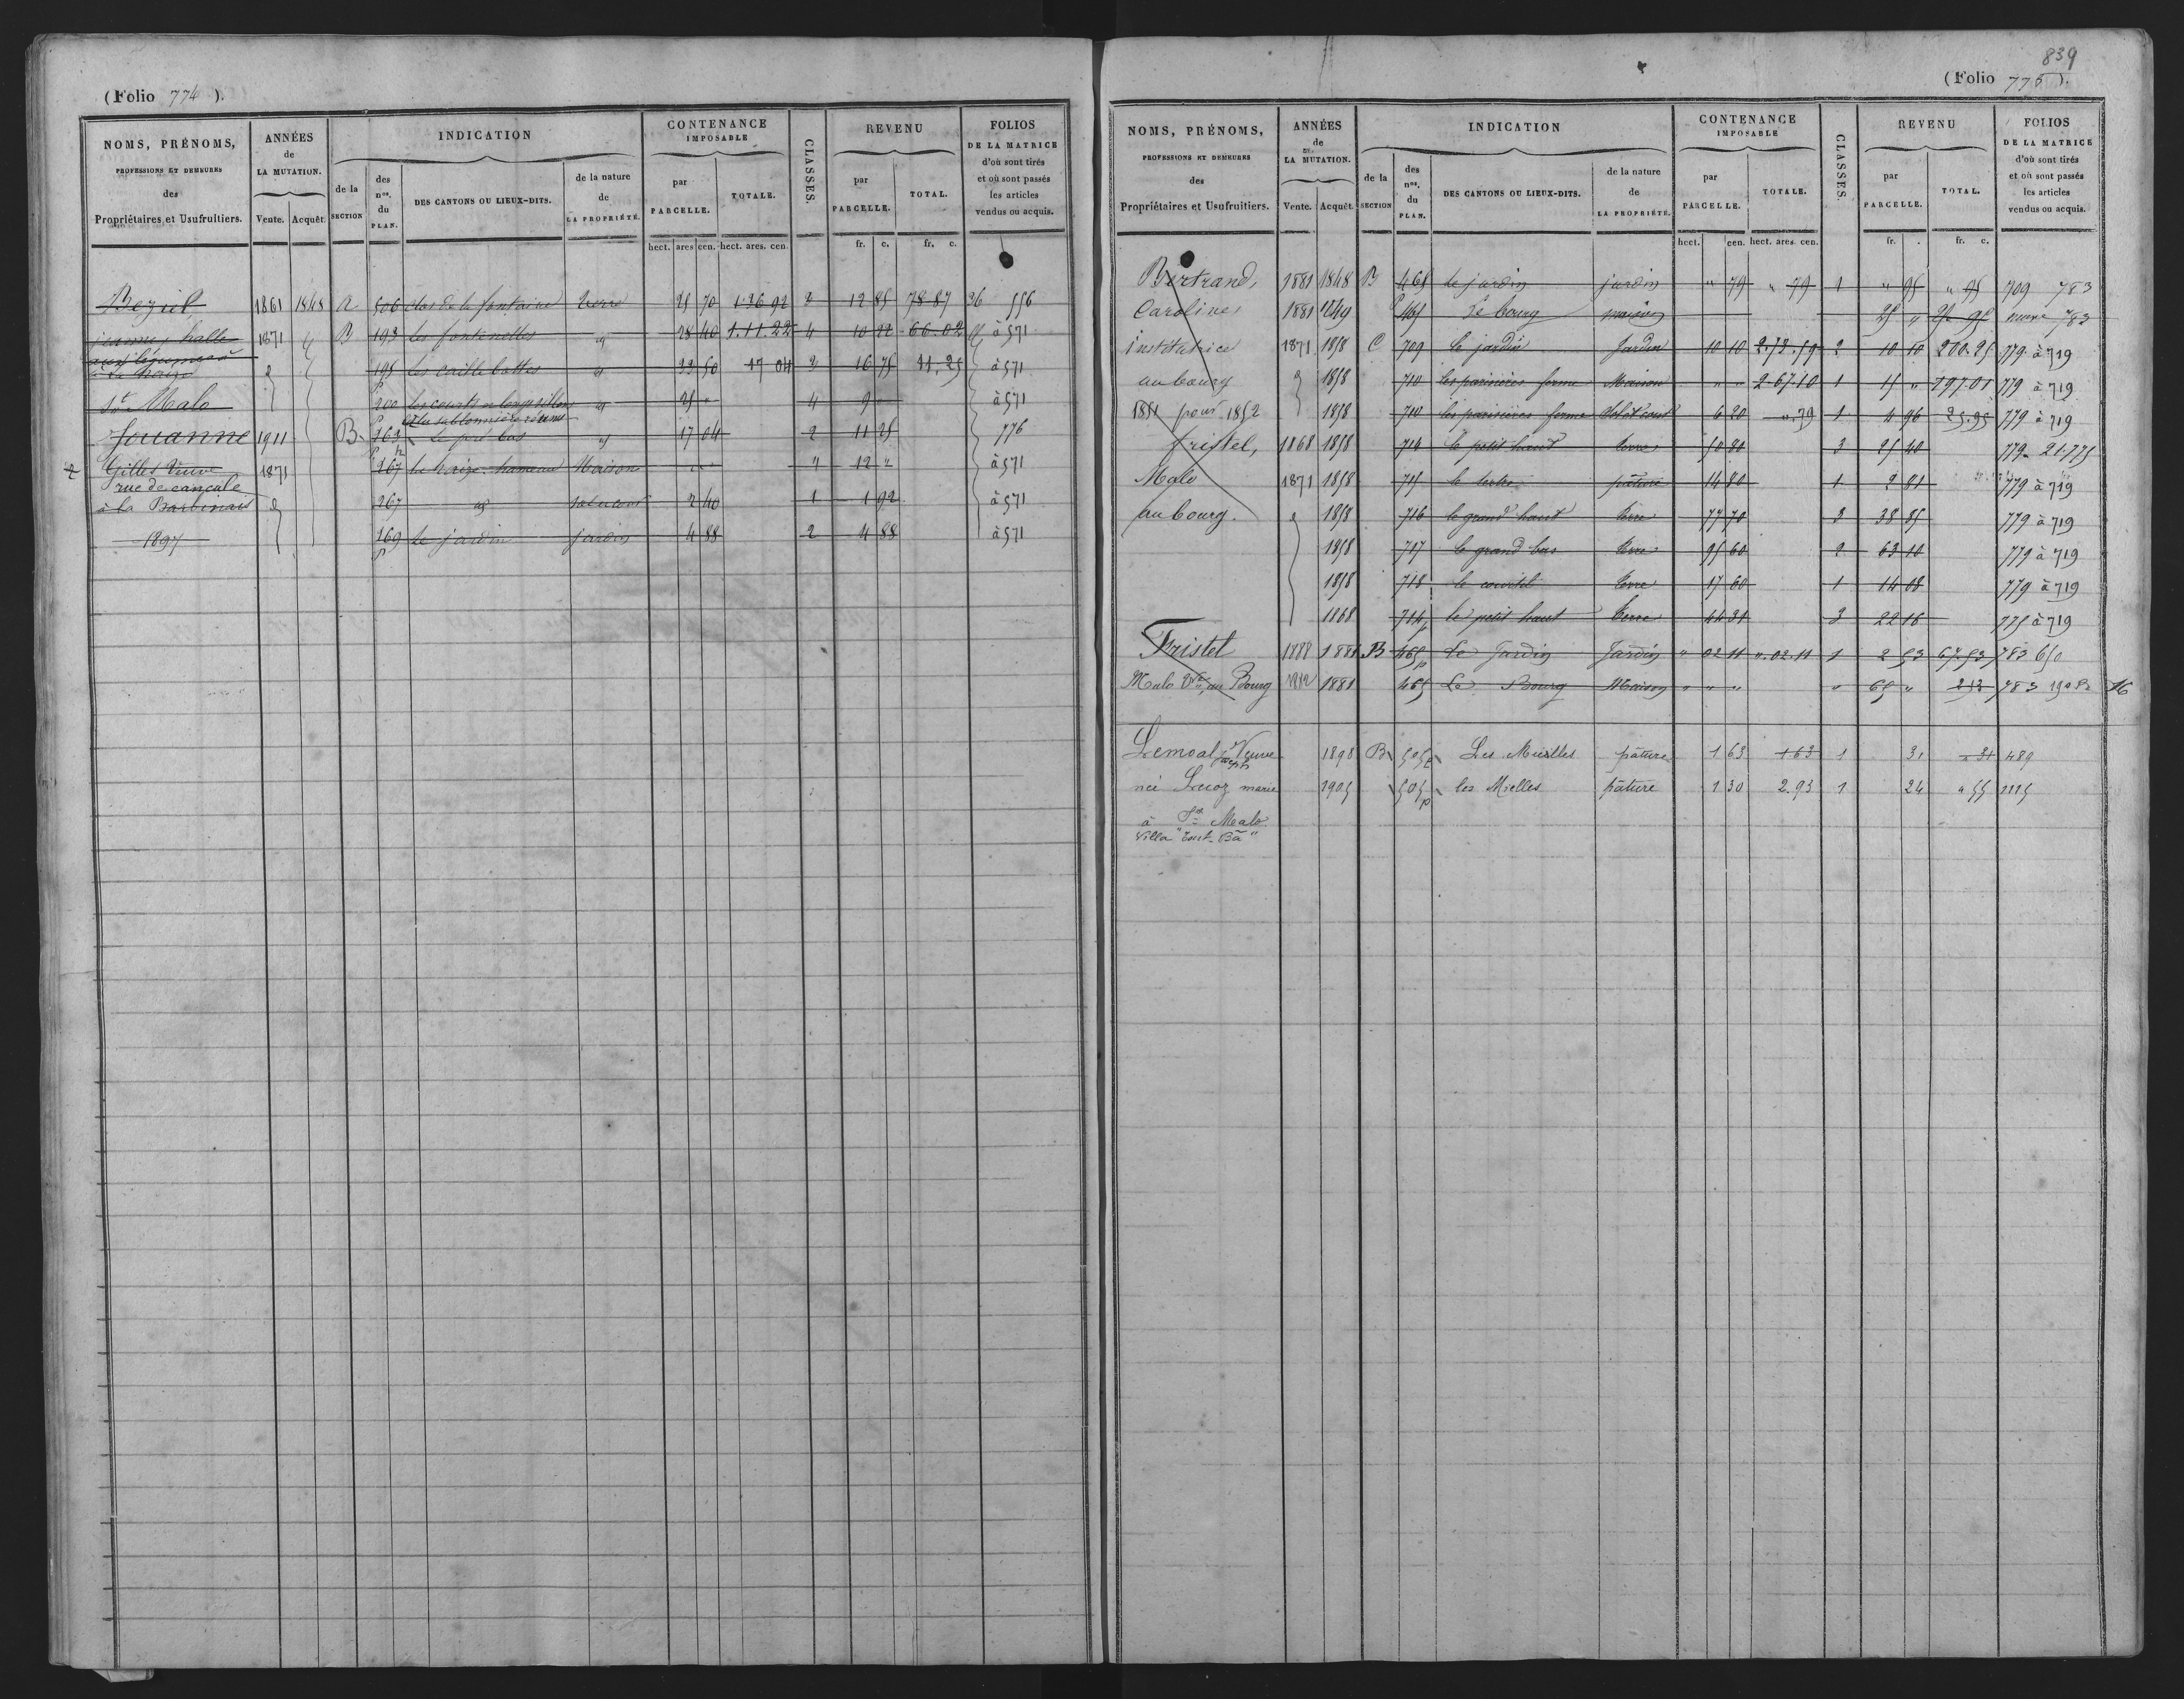 (Folio 774 ).
NOMS, PRÉNOMS, PROFESSIONS ET DEMEURES des Propriétaires et Usufruitiers.
ANNÉES de LA MUTATION. Vente. Acquêt.
INDICATION
de la SECTION
des nos. du PLAN.
DES CANTONS OU LIEUX-DITS.
de la nature de LA PROPRIÉTÉ.
CONTENANCE IMPOSABLE
par PARCELLE. TOTALE.
hect. ares cen. hect. ares. cen.
CLASSES.
REVENU
par PARCELLE. TOTAL.
fr. c. fr. c.
FOLIOS DE LA MATRICE d'où sont tirés et où sont passés les articles vendus ou acquis.
Beziel 1861 1848 A 506 clos de la fontaine terre 25 70 1.36.92 3 12 85 78 87 36 556
1871 B 193 les fontenelles id 28 40 1.11.22 4 10 22 66.02 à 571
la haize 195 les caillebottes id 33 50 17 04 3 16 75 11,25 à 571
St Malo 200 id 25 " 4 9 " à 571
Jouanne 1911 B 163 Le pré bas id 17 04 2 11 25 776
Gilles Veuve 1871 167 la haize hameau Maison " " " 12 " à 571
rue de cancale
à la Barbinais 267 id sol et cour 2 40 1 1 92 à 571
1897 169 le jardin jardin 4 88 2 4 88 à 571
839
(Folio 775 ).
NOMS, PRÉNOMS, PROFESSIONS ET DEMEURES des Propriétaires et Usufruitiers.
ANNÉES de LA MUTATION. Vente. Acquêt.
INDICATION
de la SECTION
des nos. du PLAN.
DES CANTONS OU LIEUX-DITS.
de la nature de LA PROPRIÉTÉ.
CONTENANCE IMPOSABLE
par PARCELLE. TOTALE.
hect. cen. hect. ares. cen.
CLASSES.
REVENU
par PARCELLE. TOTAL.
fr. . fr. c.
FOLIOS DE LA MATRICE d'où sont tirés et où sont passés les articles vendus ou acquis.
Bertrand, 1881 1848 B 465 le jardin jardin " 79 " 79 1 " 95 " 95 709 783
Caroline, 1881 1849 465 Le bourg maison 25 " 25 95 783
institutrice 1871 1858 C 709 le jardin Jardin 10 10 2.73.59 2 10 10 260.25 779 à 719
au bourg 1858 710 les parisières ferme Maison " " 2.67.10 1 15 " 197.01 779 à 719
1851 pour 1852 1858 710 les parisières ferme 6 20 ".79 1 4 96 25.95 779 à 719
fristel, 1868 1858 714 le petit haut terre 50 80 3 25 40 779
Malo 1871 1858 715 le tertre pâture 14 80 1 2 81 779 à 719
au bourg. 1858 716 le grand haut terre 77 70 3 38 85 779 à 719
1858 717 le grand bas terre 95 60 2 63 10 779 à 719
1858 718 le courtil terre 17 60 1 14 08 779 à 719
1868 714p le petit haut terre 44 31 3 22 16 775 à 719
Fristel 1888 1881 B 465p Le Jardin Jardin " 02 11 ".02.11 1 2 53 67.53 783 650
Malo Vve au Bourg 1912 1881 465 Le Bourg Maison " " " " 65 " 783 16
Lemoal Joseph Veuve 1898 B 505p Les Mielles pâture 1 63 1 63 1 31 " 31 489
née Lucoz marie 1905 505p les Mielles pâture 1 30 2.93 1 24 " 55 1115
à St Malo
Villa